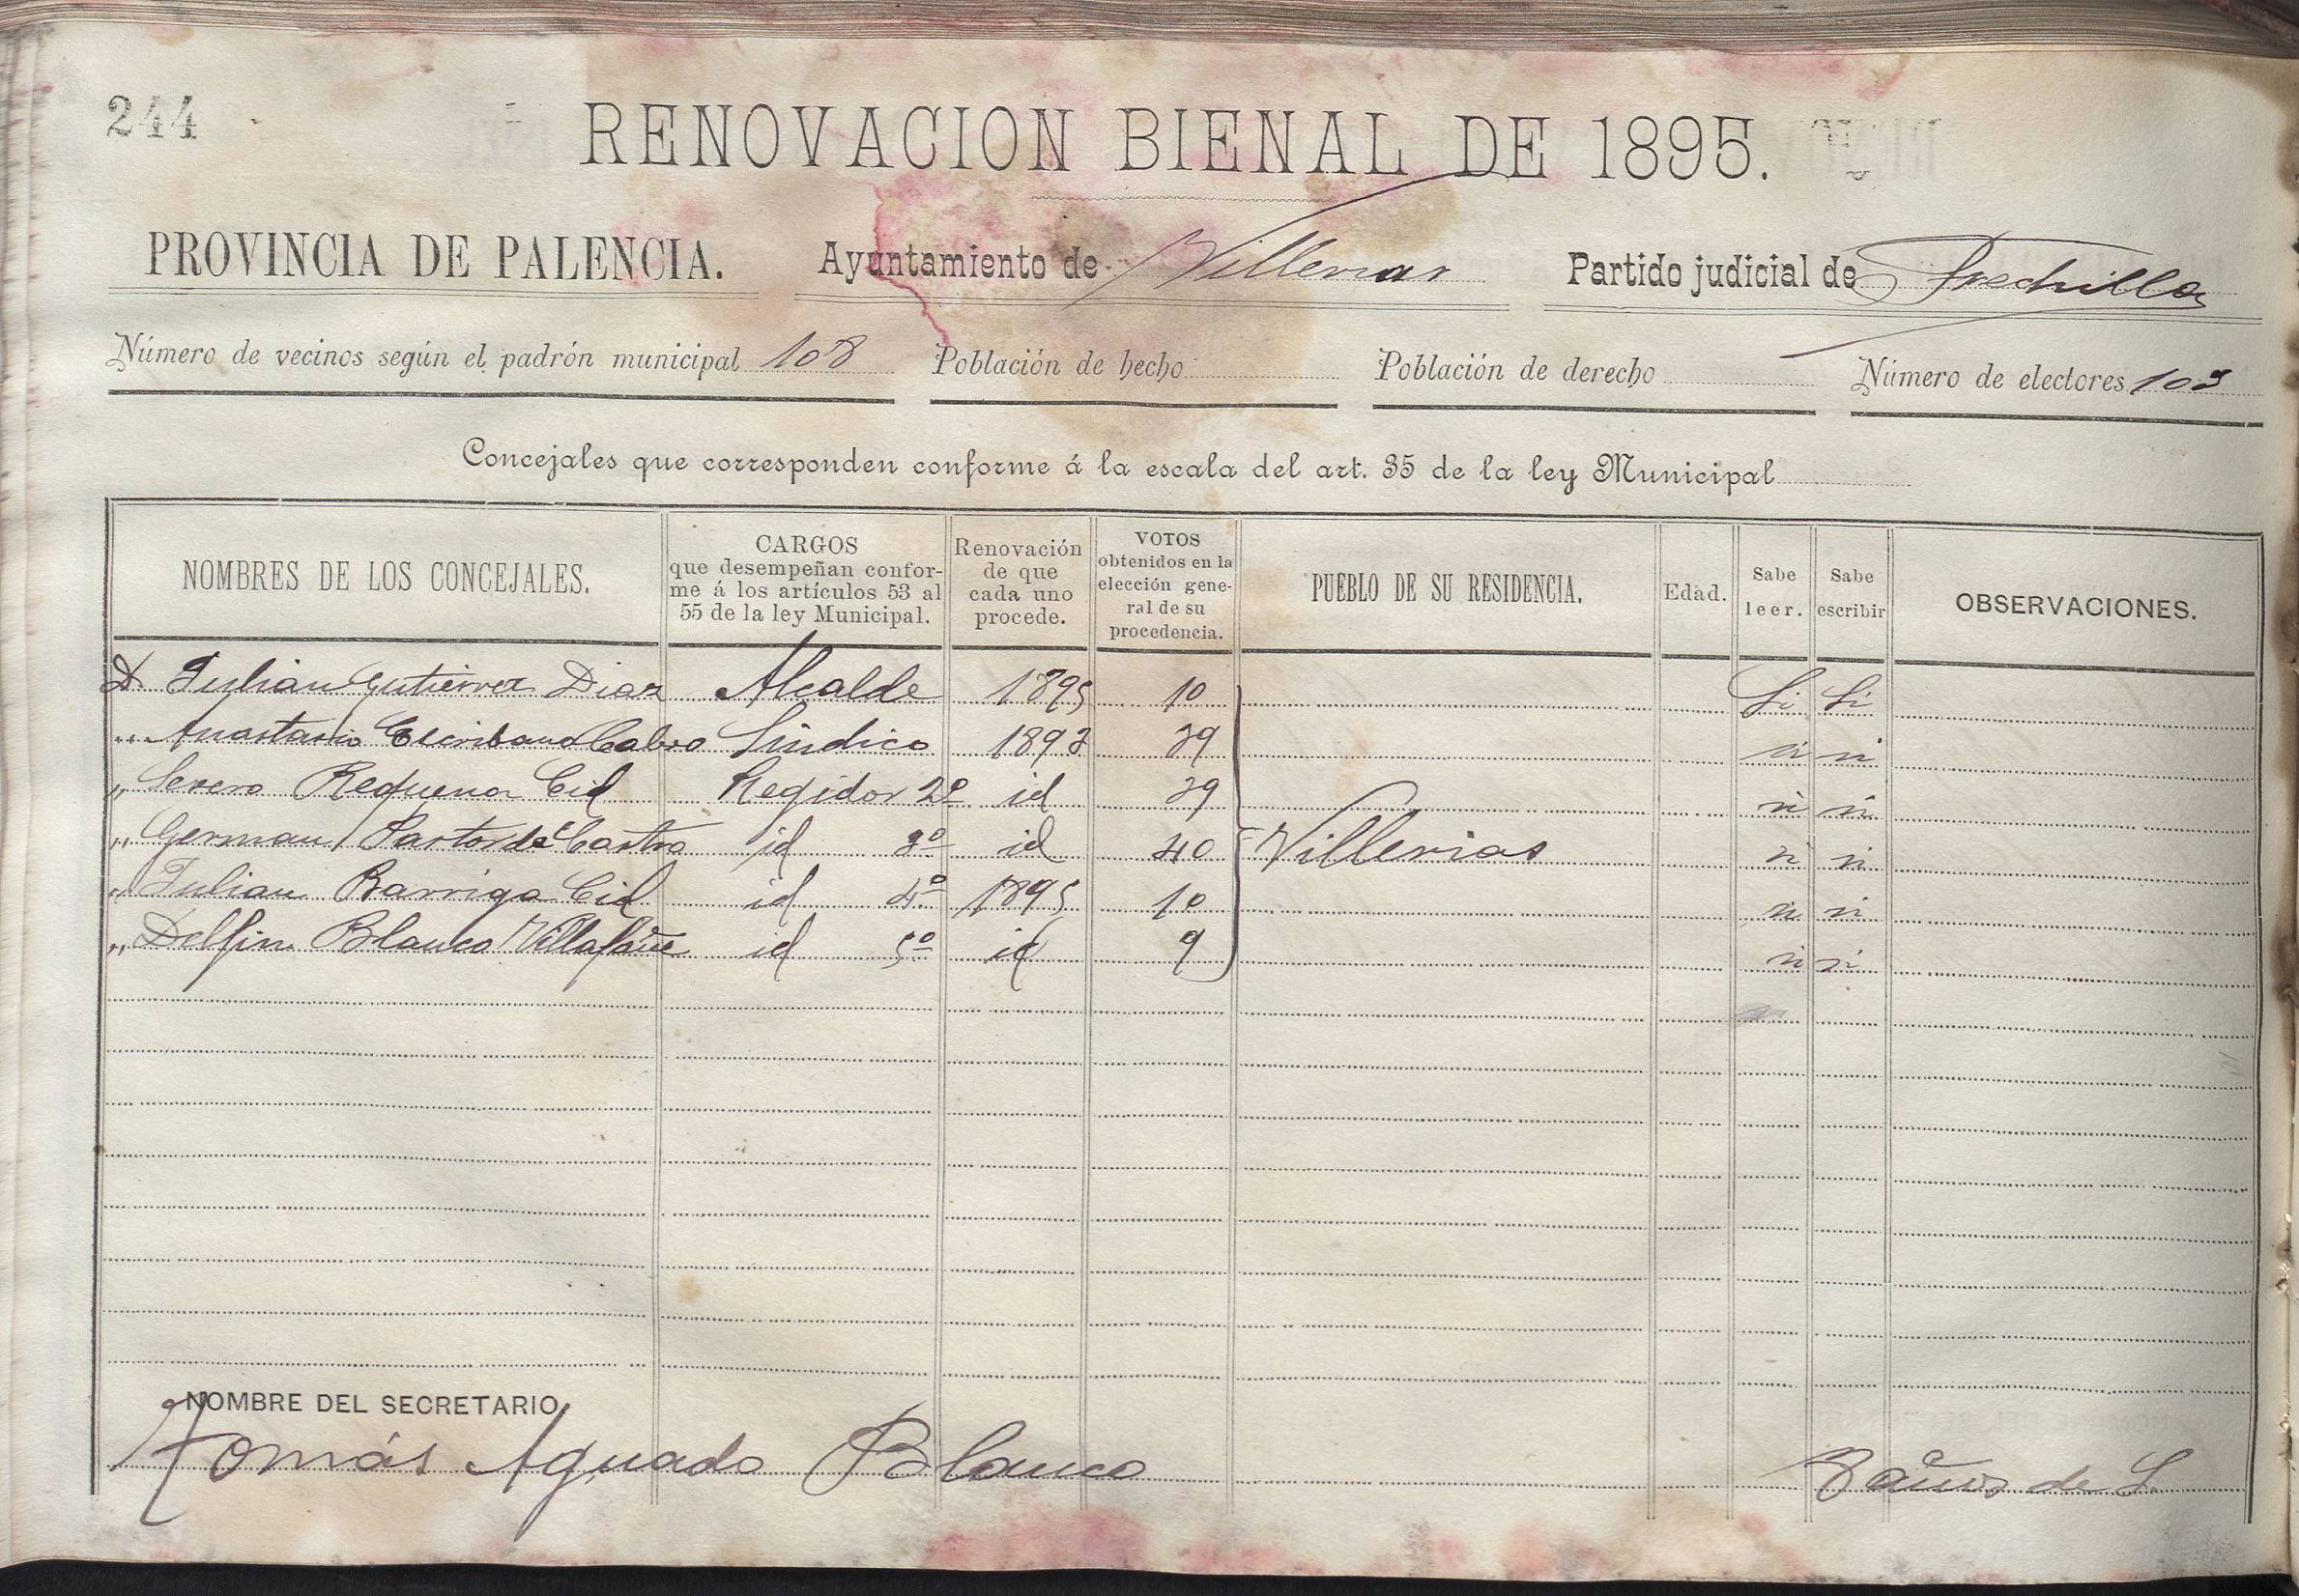 244
RENOVACION BIENAL DE 1895.
PROVINCIA DE PALENCIA. Ayuntamiento de Villerias Partido judicial de Frechilla
Número de vecinos según el padrón municipal 108 Población de hecho Población de derecho Número de electores 103
Concejales que corresponden conforme á la escala del art. 35 de la ley Municipal
NOMBRES DE LOS CONCEJALES. CARGOS que desempeñan confor-me á los artículos 53 al 55 de la ley Municipal. Renovación de que cada uno procede. VOTOS obtenidos en la elección gene-ral de su procedencia. PUEBLO DE SU RESIDENCIA. Edad. Sabe leer. Sabe escribir OBSERVACIONES.
D. Julian Gutierrez Diaz Alcalde 1895 10 Si Si
" Anastasio Escribano Calvo Sindico 1893 39 si si
" Severo Requena Cid Regidor 2º id 39 si si
" German Pastor de Castro id 3º id 40 Villerias si si
" Julian Barriga Cid id 4º 1895 10 si si
" Delfin Blanco Villafañe id 5º id 9 si si
NOMBRE DEL SECRETARIO
Tomás Aguado Blanco Baños de